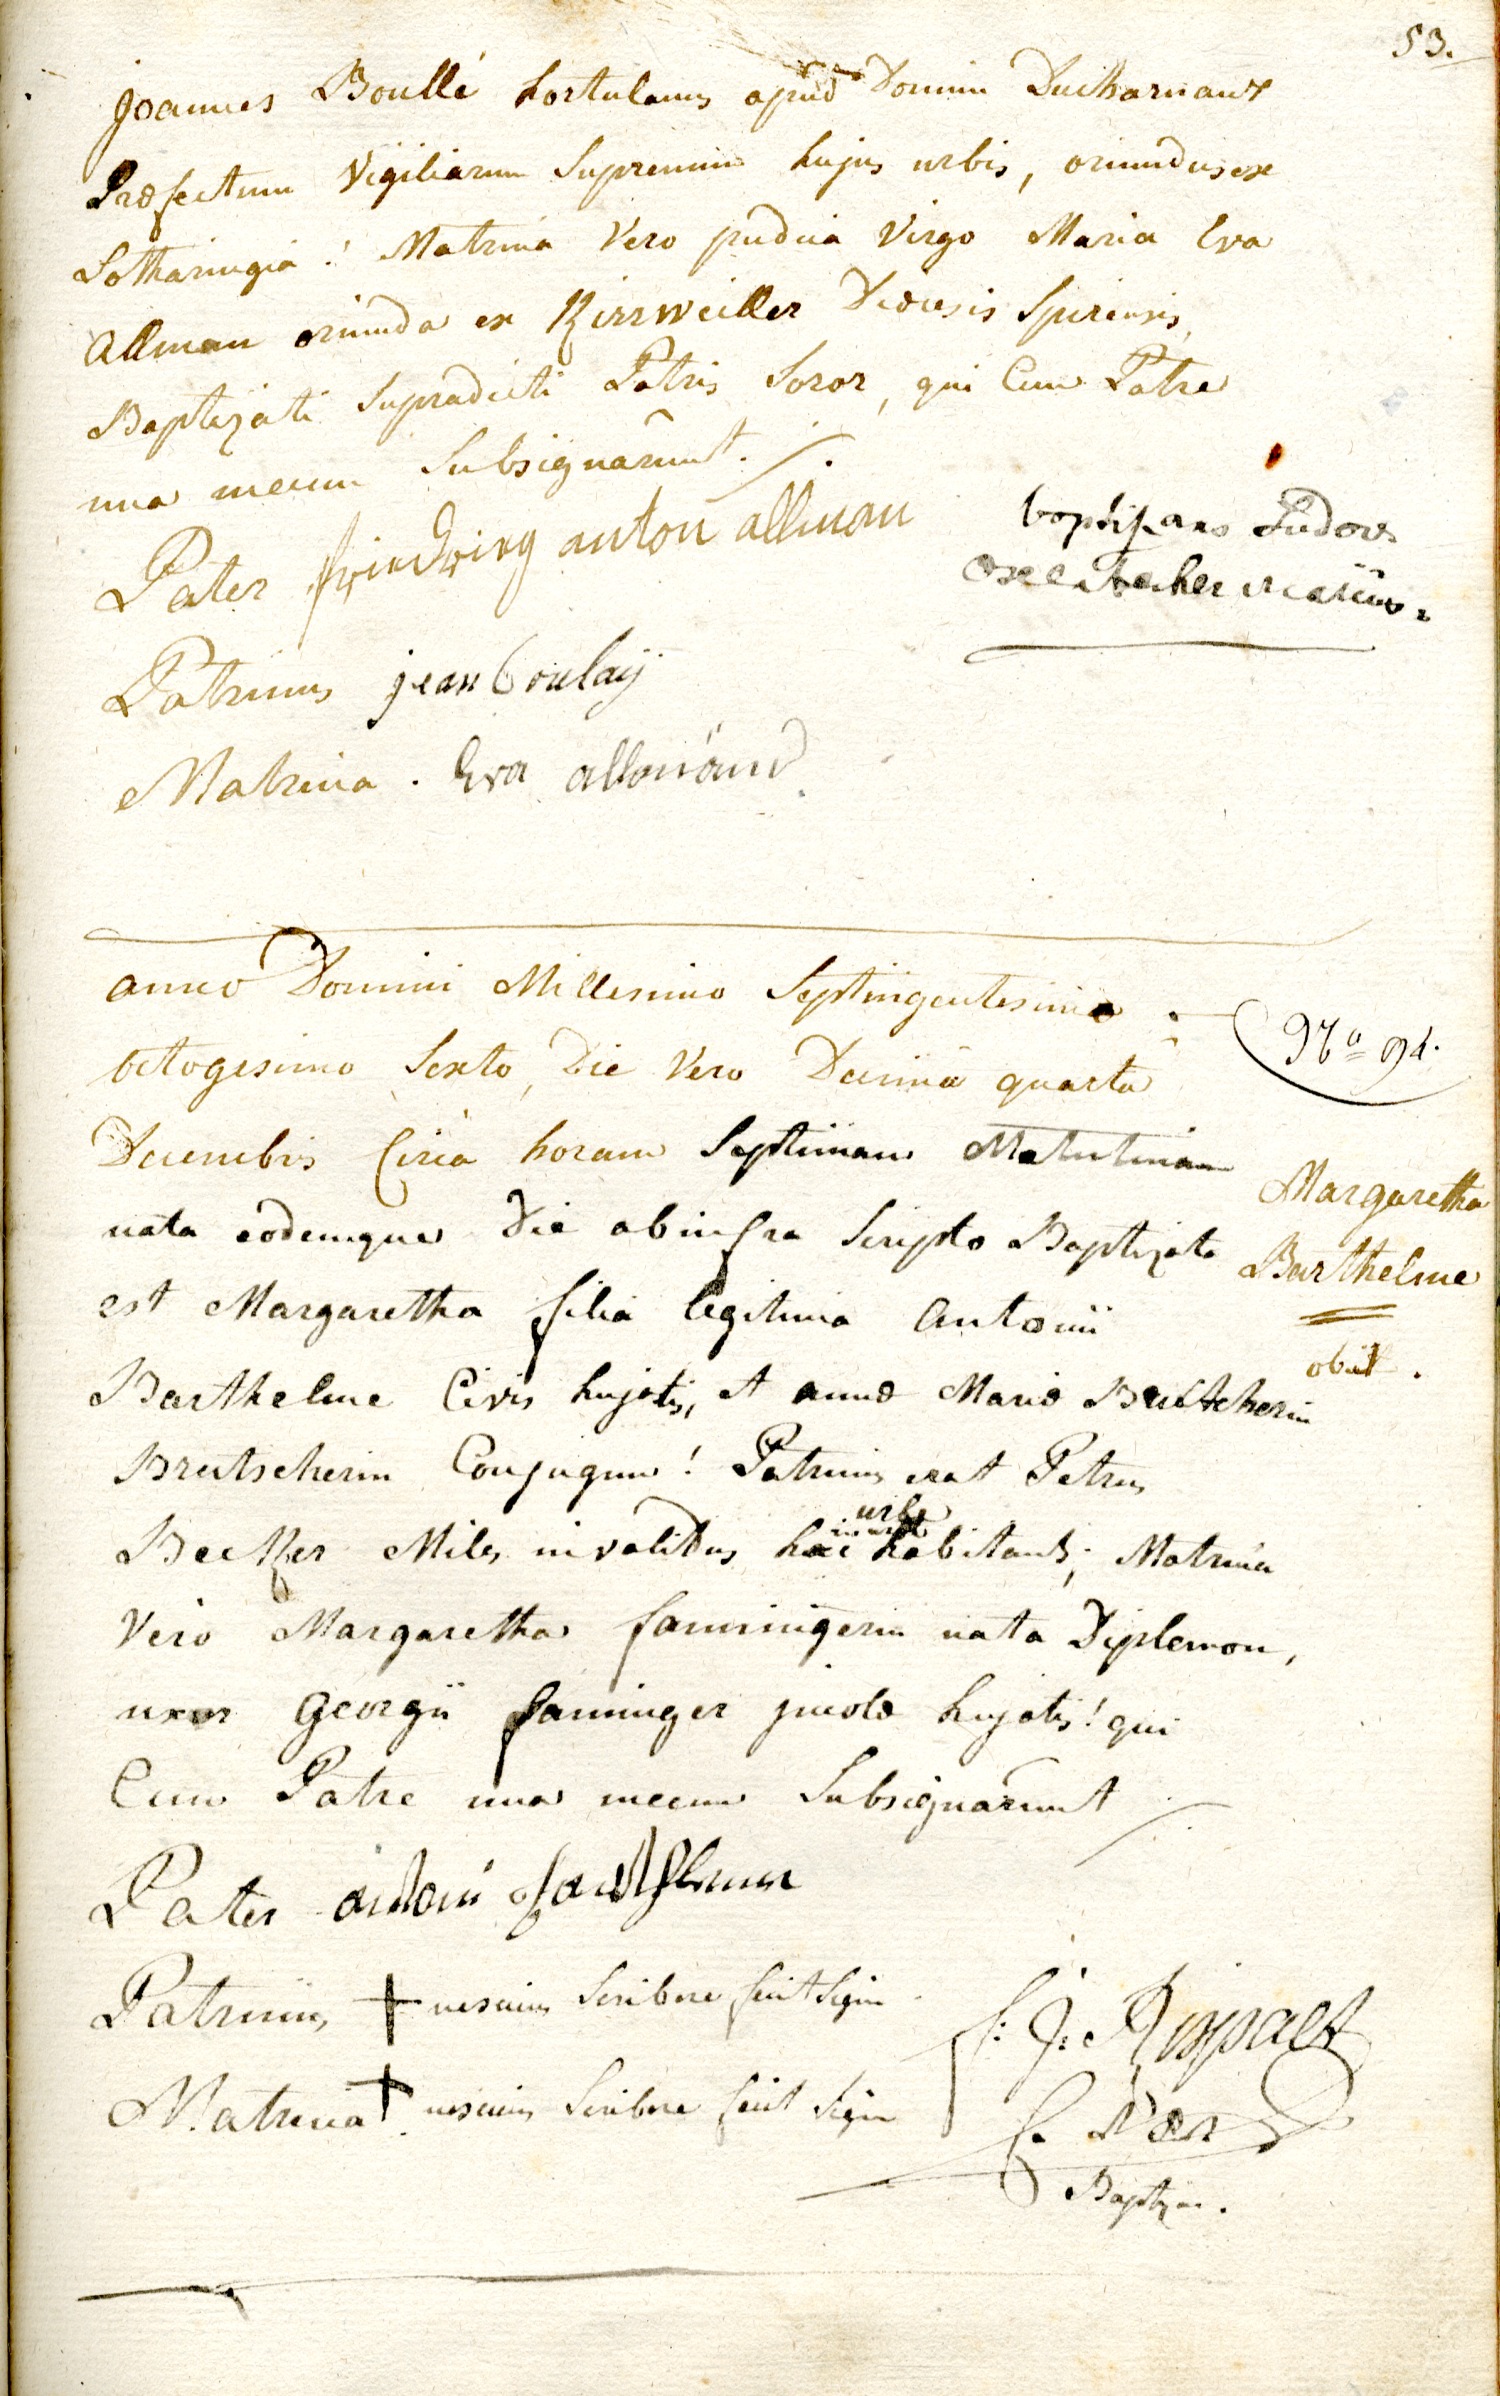 53.
Joannes Boullé hortulanus apud Domin Ducharnaux
Præfectum Vigiliarum Supremum hujus urbis, oriundus ex
Lotharingia! Matrina Vero pudica Virgo Maria Eva
Allman oriunda ex Kirrweiller Diœcesis Spirensis,
Baptizati Supradicti Patris Soror, qui Cum Patre
una mecum Subsignarunt ./.
Pater anton allman
baptizans Ludov.
Patrinus jean boulaÿ
Matrina . Eva
anno Domini Millesimo Septingentesimo
octogesimo Sexto, Die Vero Decimâ quartâ
Nº 94.
Decembris Circa horam Septimam Matutinam
Margaretha
nata eodemque Die ab infra Scripto Baptizata
Barthelme
est Margaretha filia legitima Antonii
obiit .
Barthelme Civis hujatis, et annæ Mariæ
Brutscherin Conjugum! Patrinus erat Petrus
Becker Miles invalidus hac urbe habitans; Matrina
Vero Margaretha fanningerin nata Diplemon,
uxor Georgii fanninger incolæ hujatis! qui
Cum Patre una mecum Subsignarunt ./.
Pater antoni
Patrinus + nescius Scribere fecit Sign
Matrina + nescius Scribere fecit Sign
Baptizans.